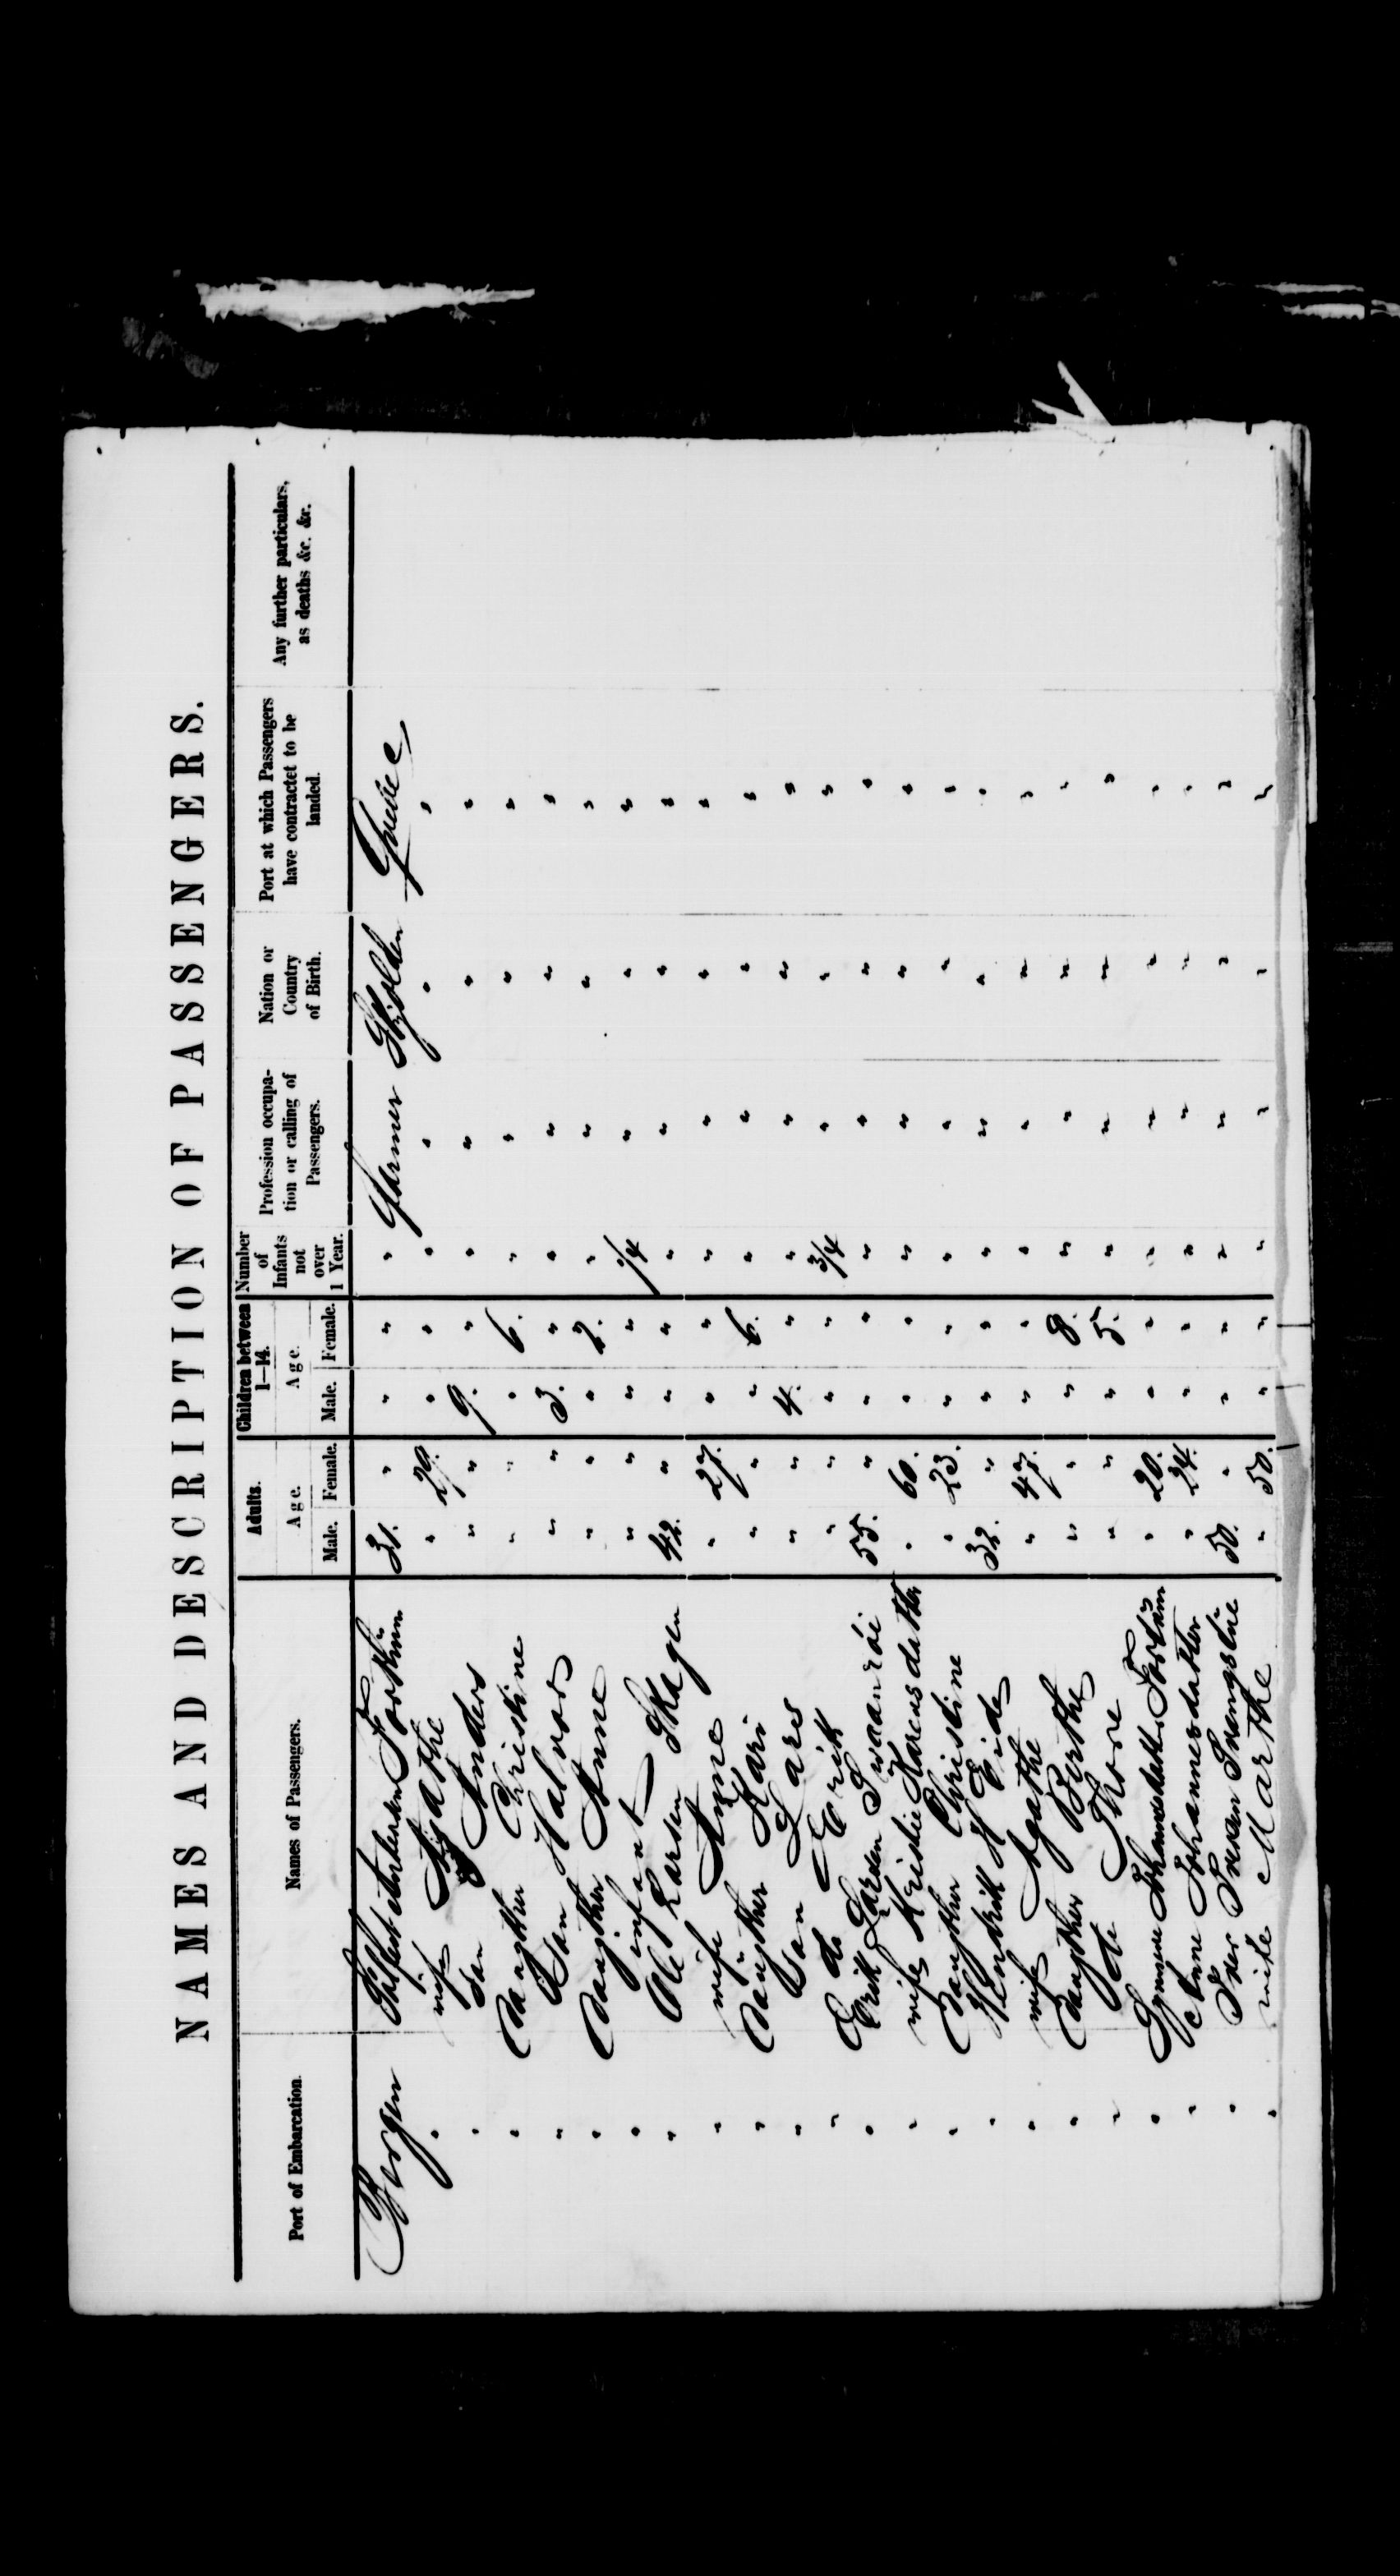 NAMES AND DESCRIPTION OF PASSENGERS.
Port of Embarcation. Names of Passengers. Adults. Age. Male. Female. Children between 1—14. Age. Male. Female. Number of Infants not over 1 Year. Profession occupa- tion or calling of Passengers. Nation or Country of Birth. Port at which Passengers have contractet to be landed. Any further particulars, as deaths &c. &c.
Bergen 31. " " " " Farmer
" wife Agathe " 29. " " " " " "
" son Anders " " 9. " " " " "
" daughter Christine " " " 6. " " " "
" son Halvor " " 3. " " " " "
" daughter Anne " " " 2. " " " "
" infant " " " " " " "
" Ole Larsen Skagen 42. " " " " " " "
" wife Anne " 27. " " " " " "
" daughter Kari " " " 6. " " " "
" son Lars " " 4. " " " " "
" do Erik " " " " 3/4 " " "
" Erik Larsen 55. " " " " " " "
" wife " 60. " " " " " "
" daughter Christine " 23. " " " " " "
" Hendrik H Eide 32. " " " " " " "
" wife Agathe " 47. " " " " " "
" daughter Birthe " " " 8. " " " "
" do Thore " " " 5. " " " "
" " 20. " " " " " "
" Anne Johannesdatter " 24. " " " " " "
" Iver 50. " " " " " " "
" wife Marthe " 50. " " " " " "